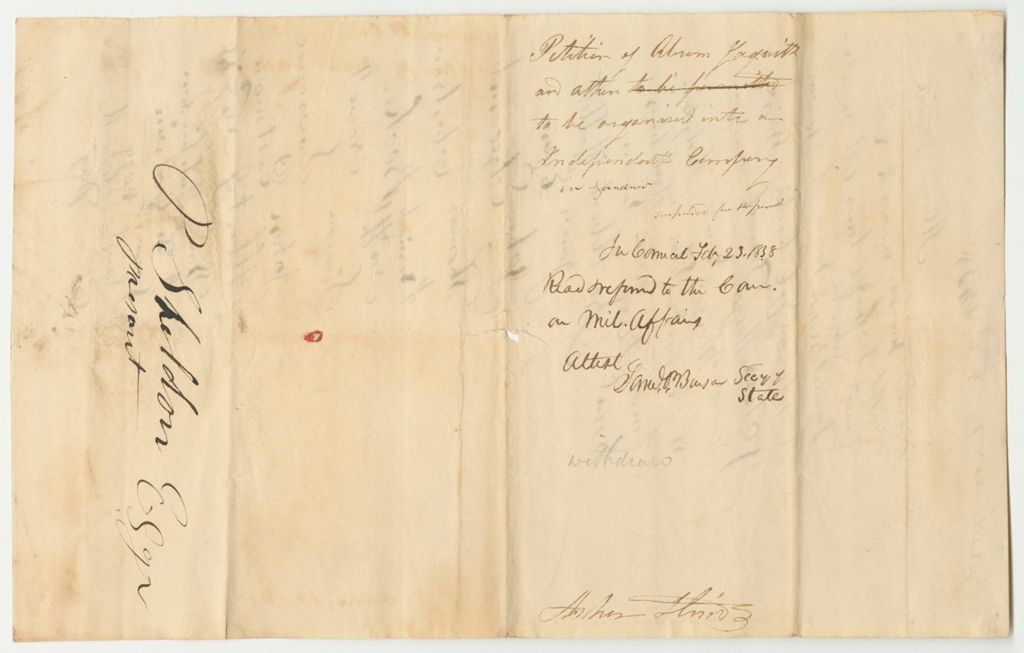 Petition of Abram Jaquith
and others to be permitted
to be organized into a
Independent Company
in Gardner
In Council Feb, 23. 1838
Read & referred to the Com.
on Mil. Affairs
Attest
Secy of
State
withdraw
P Sheldon Esqr
Present